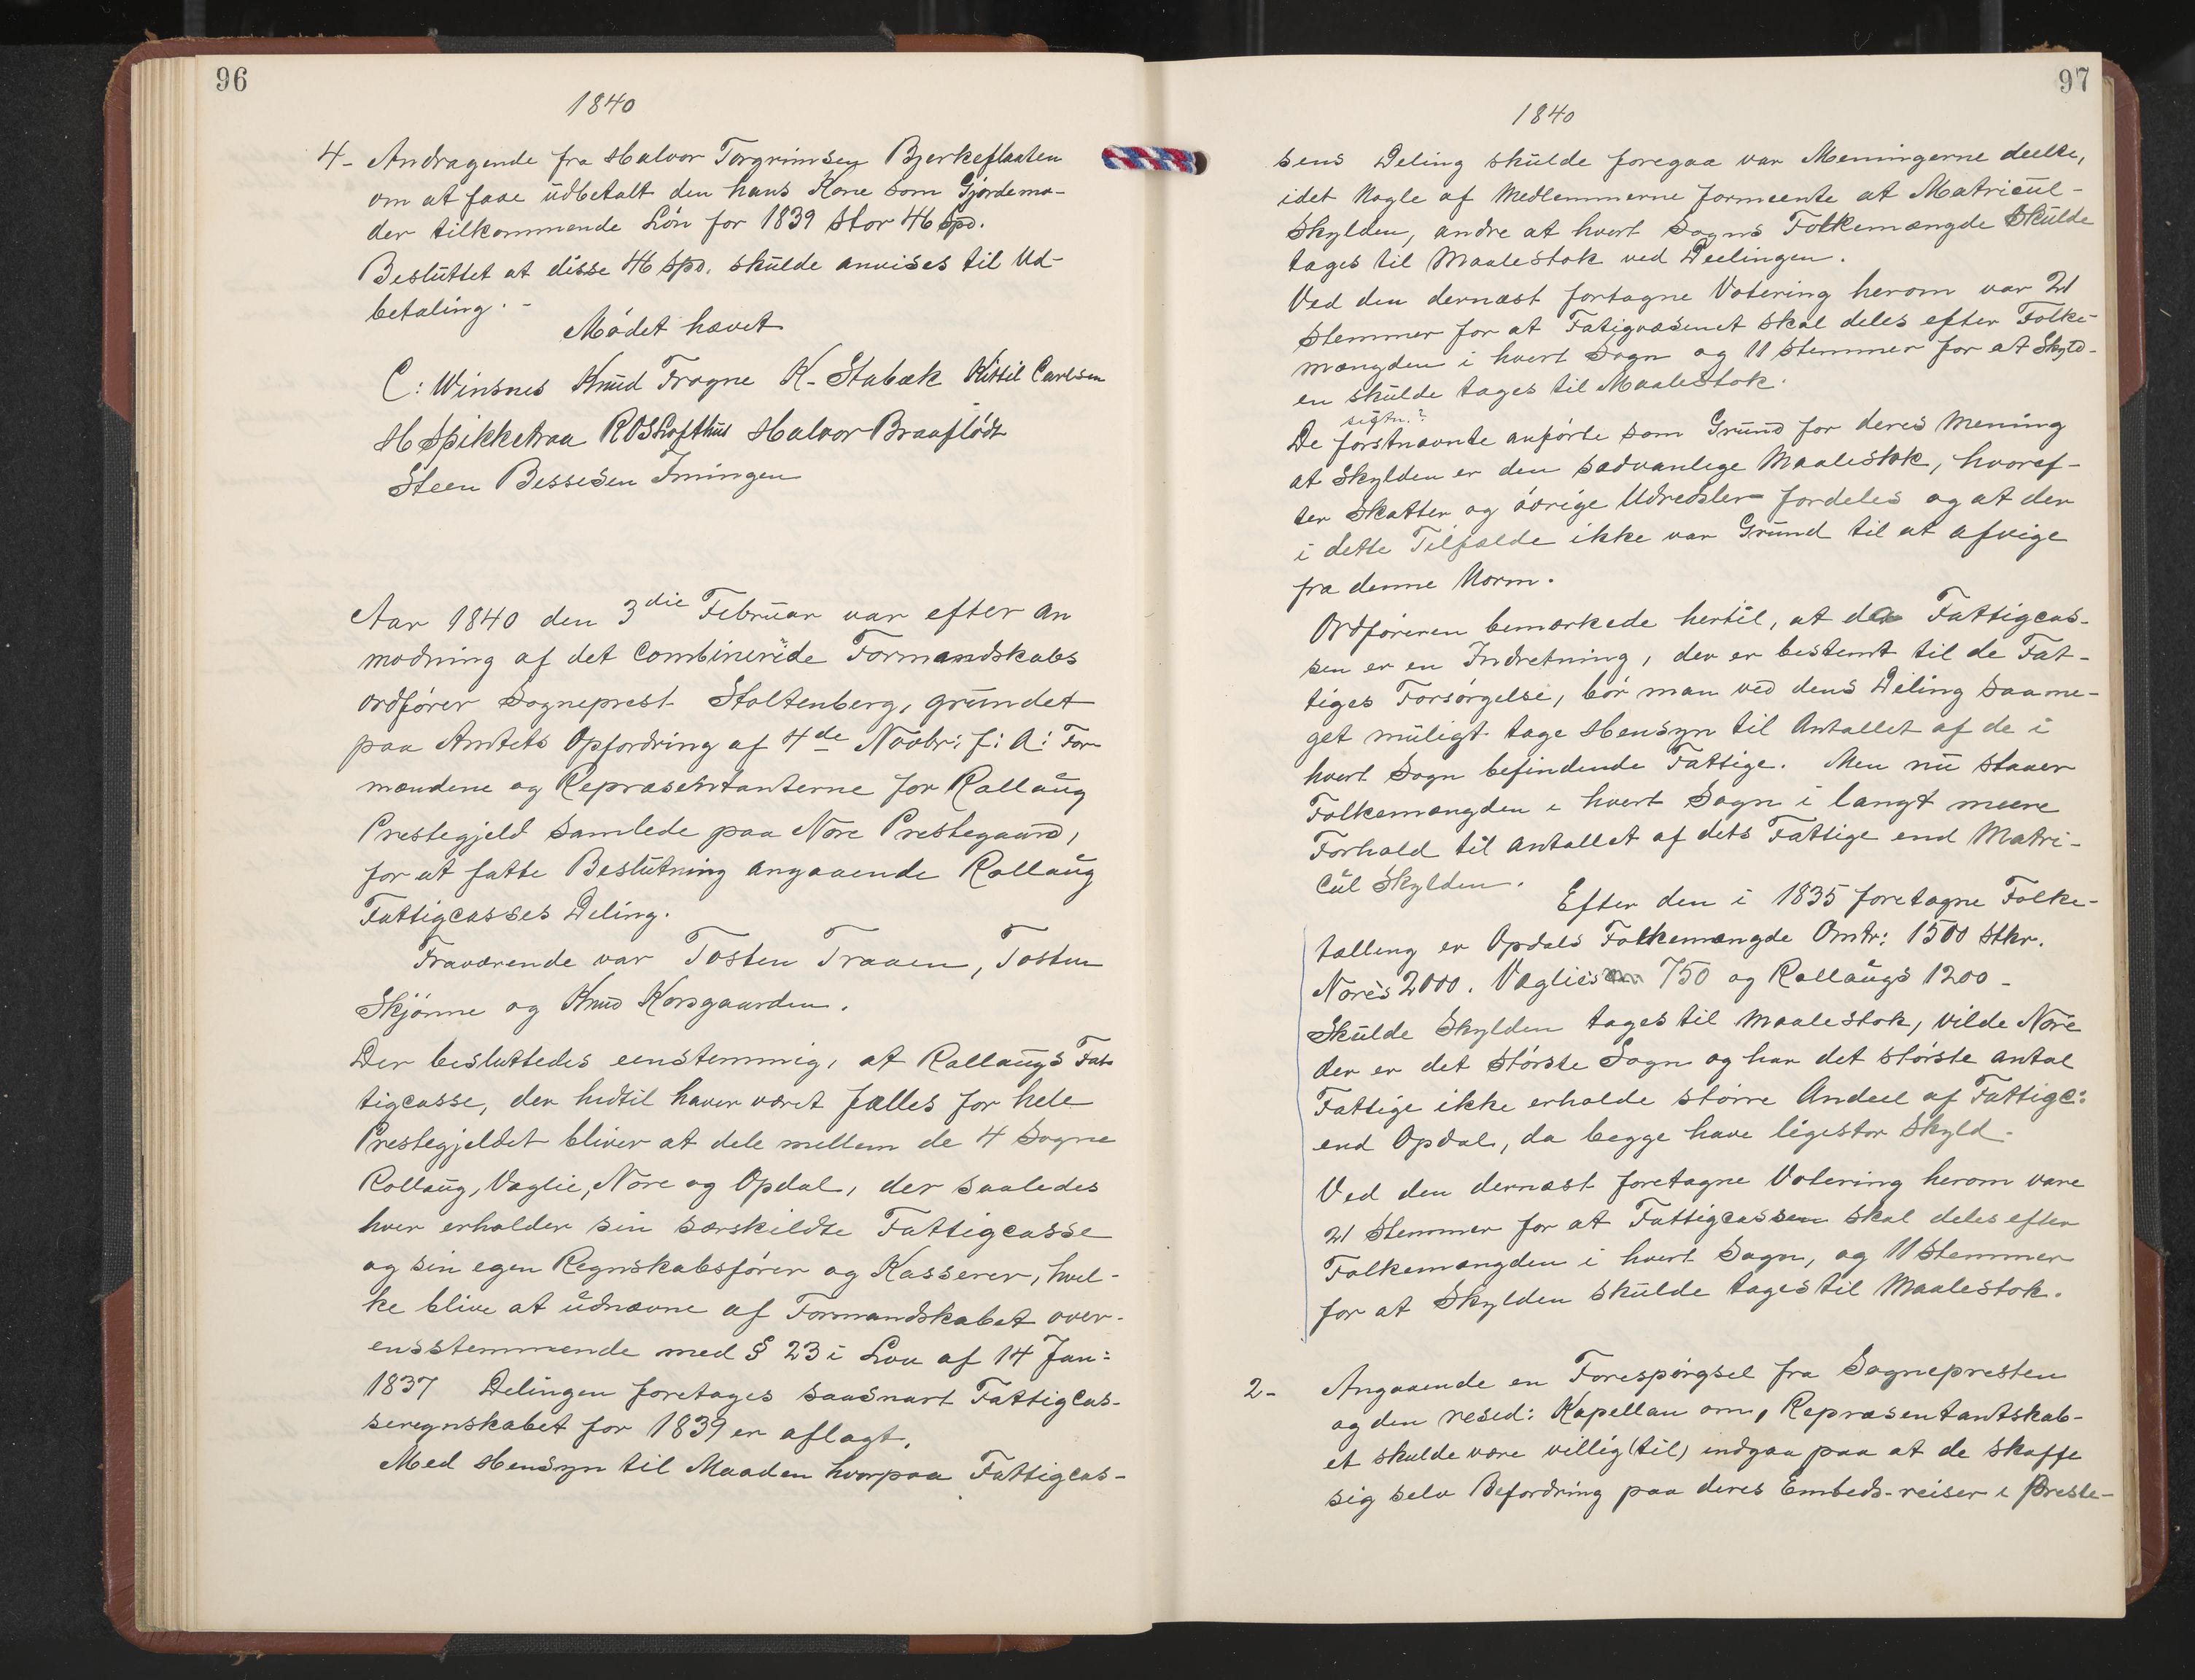 96
1840
4- Andragende fra Halvor Torgrimsen Bjerkeflaaten
om at faae udbetalt den hans Kone som Gjordemo-
der tilkommende Lön for 1839 stor 46 Spd.
Besluttet at disse 46 Spd. skulde anvises til Ud-
betaling. -
Mödet hævet
C: Winsnes Knud Fragne K. Stabæk Kittil Carlsen
H Spikketraa ROSLofthus Halvor Braaflödt
Steen Bessesen Imingen
Aar 1840 den 3die Februar var efter An
modning af det Combinerede Formandskabs
Ordförer Sogneprest Stoltenberg, grundet
paa Amtets Opfordring af 4de Novbr: f: A: For
mændene og Repræsentanterne for Rollaug
Prestegjeld samlede paa Nore Prestegaard,
for at fatte Beslutning angaaende Rollaug
Fattigcasses Deling.
Fraværende var Tosten Traaen, Tosten
Skjönne og Knud Korsgaarden.
Der besluttedes eenstemmig, at Rollaugs Fat
tigcasse, der hidtil haver været fælles for hele
Prestegjeldet bliver at dele mellem de 4 Sogne
Rollaug, Vaglie, Nore og Opdal, der saaledes
hver erholder sin særskildte Fattigcasse
og sin egen Regnskabsförer og Kasserer, hvil-
ke blive at udnævne af Formandskabet over-
ensstemmende med § 23 i Lov af 14 Jan:
1837 Delingen foretages saasnart Fattigcas-
seregnskabet for 1839 er aflagt.
Med Hensyn til Maaden hvorpaa Fattigcas-
97
1840
sens Deling skulde foregaa var Meningerne deelte,
idet Nogle af Medlemmerne formeente at Matricul-
Skylden, andre at hvert Sogns Folkemængde Skulde
tages til Maalestok ved Deelingen.
Ved den dernæst fortagne Votering herom var 21
stemmer for at Fatigvæsenet skal deles efter Folke-
mængden i hvert Sogn og 11 stemmer for at Skyld-
en skulde tages til Maalestok.
sistn.?
De förstnævnte anförte som Grund for deres Mening
at Skylden er den sædvanlige Maalestok, hvoref-
ter Skatter og övrige Udredsler fordeles og at der
i dette Tilfælde ikke var Grund til at afvige
fra denne Norm.
Ordföreren bemærkede hertil, at da Fattigcas-
sen er en Indretning, der er bestemt til de Fat-
tiges Forsörgelse, bör man ved dens Deling saame-
get muligt tage Hensyn til Antallet af de i
hvert Sogn befindende Fattige. Men nu staaer
Folkemængden i hvert Sogn i langt meere
Forhold til Antallet af dets Fattige end Matri-
cul Skylden.
Efter den i 1835 foretagne Folke-
tælling er Opdals Folkemængde Omtr: 1500 Stkr.
Nores 2000. Vaglies 750 og Rollaugs 1200 -
Skulde Skylden tages til Maalestok, vilde Nore
der er det störste Sogn og har det störste Antal
Fattige ikke erholde större Andeel af Fattigc:
end Opdal, da begge have ligestor Skyld.
Ved den dernæst foretagne Votering herom vare
21 Stemmer for at Fattigcassen skal deles efter
Folkemængden i hvert Sogn, og 11 Stemmer
for at Skylden skulde tages til Maalestok.
2- Angaaende en Forespörgsel fra Sognepresten
og den resid: Kapellan om, Repræsentantskab-
et skulde være villig (til) indgaa paa at de skaffe
sig selv Befordring paa deres Embeds-reiser i Preste-